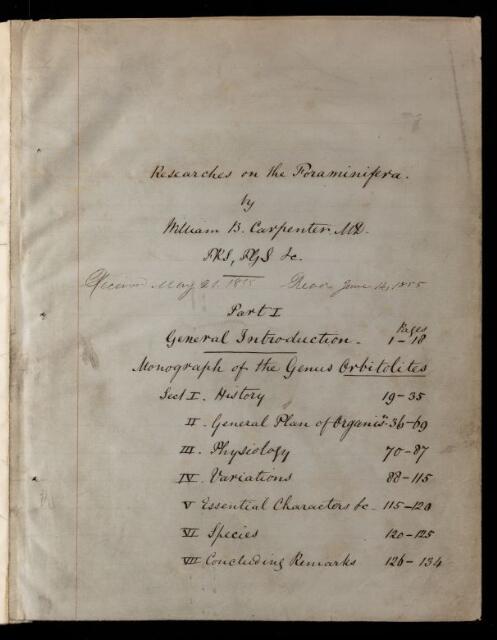 Researches on the Foraminifera.
by
William B. Carpenter MD.
FRS, FGS &c.
Received May 21. 1855 Read June 14, 1855
Part I
Pages
General Introduction - 1-18
Monograph of the Genus Orbitolites
Sect I. History 19-35
II. General Plan of Organisn 36-69
III. Physiology 70-87
IV. Variations 88-115
V Essential Characters &c. 115-120
VI Species 120-125
VII Concluding Remarks 126-134